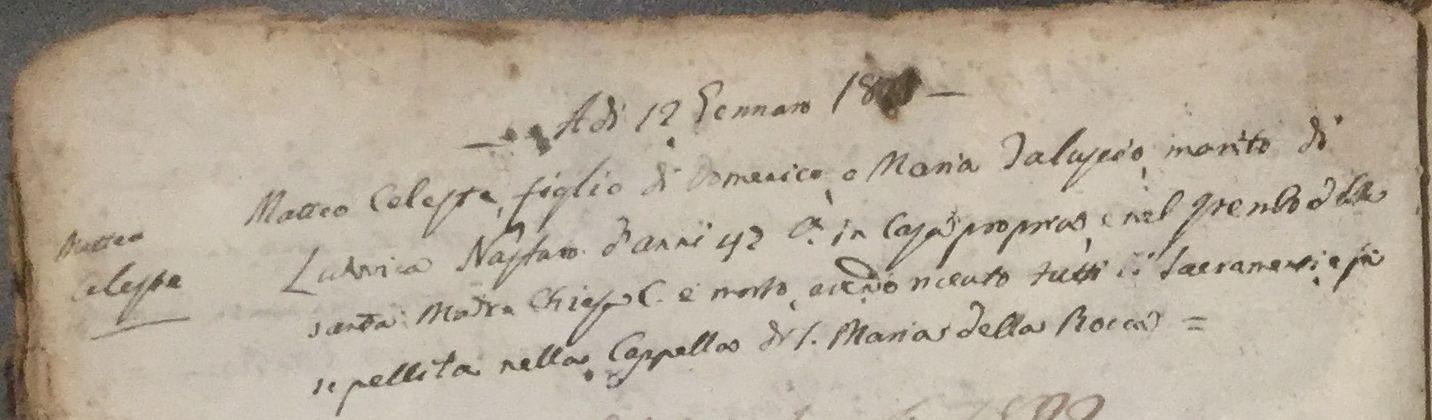 Adi 12 Gennaro
Matteo Celeste, figlio di Domenico, e Maria marito di
Matteo
Ludovica d'anni 42 C.a in Casa propria, e nel Grembo della
Celeste
santa Madre Chiesa C. è morto, avendo riceuto tutti li Sacramenti, e fù
sepellito nella Cappella di S. Maria della Rocca =